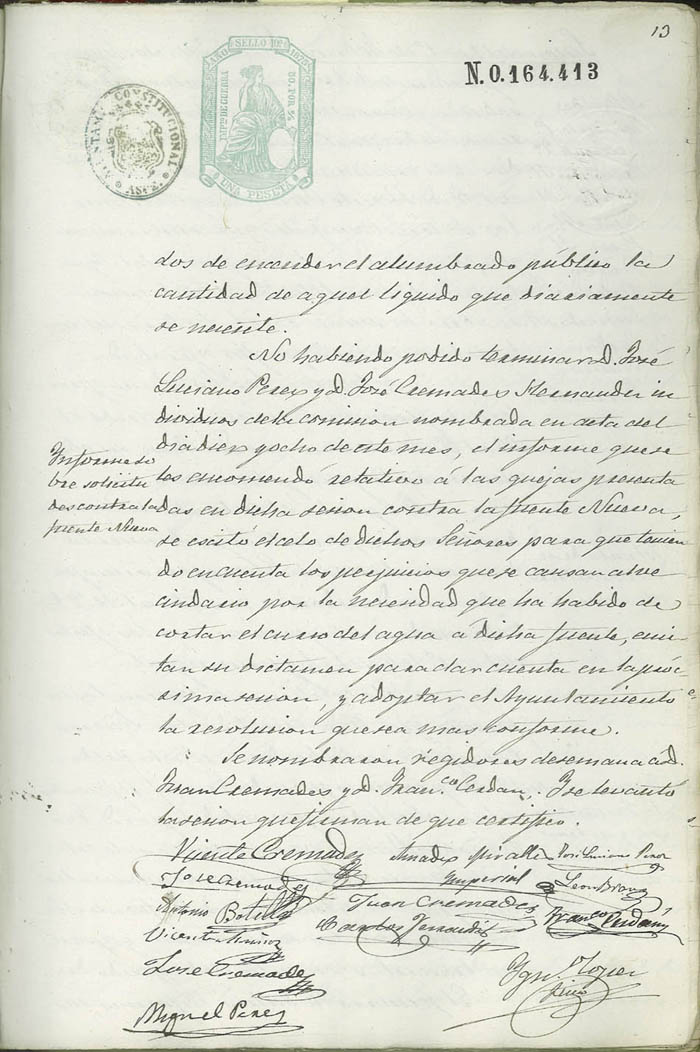 13
AÑO SELLO 10º 1875
IMPTO DE GUERRA
50. POR %
UNA PESETA
N. 0.164.413
CONSTITUCIONAL
ASPE.
dos de encender el alumbrado público la
cantidad de aquel líquido que diariamente
se necesite.
No habiendo podido terminar D. José
Luciano Perez y D. José Cremades Hernandez in
dividuos de la comision nombrada en acta del
dia diez y ocho de este mes, el informe que se
les encomendó relativo á las quejas presenta
das en dicha sesion contra la fuente Nueva,
se escitó el celo de dichos Señores para que tenien
do en cuenta los perjuicios que se causan al ve
cindario por la necesidad que ha habido de
cortar el curso del agua a dicha fuente, emi
tan su dictamen para dar cuenta en la próc
sima sesion, y adoptar el Ayuntamiento
la resolusion que sea mas conforme.
Informe so
bre solicitu
des contra la
fuente Nueva
Se nombraron regidores de semana á D.
Juan Cremades y D. Fran.co Cerdan. Y se levantó
la sesion que firman de que certifico.
Vicente Cremades
Amador Miralles
José Luciano Perez
José Cremades
Imperial
Leon Bravo
Antonio Botella
Juan Cremades
Franco Cerdán
Vicente Muñoz
Carlos
José Cremades
Miguel Perez